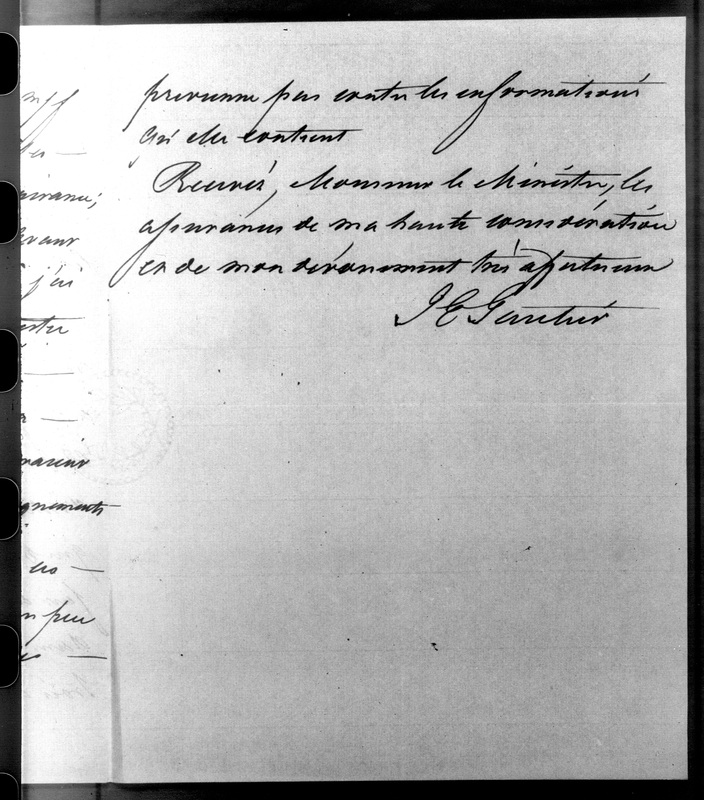 prevenu pas contre les informations
qu'elle contient
Recevez, Monsieur le Ministre, les
assurances de ma haute considération
et de mon dévouement très affectueux
J E Gauthier
airance;
j'ai
gnements
un peu